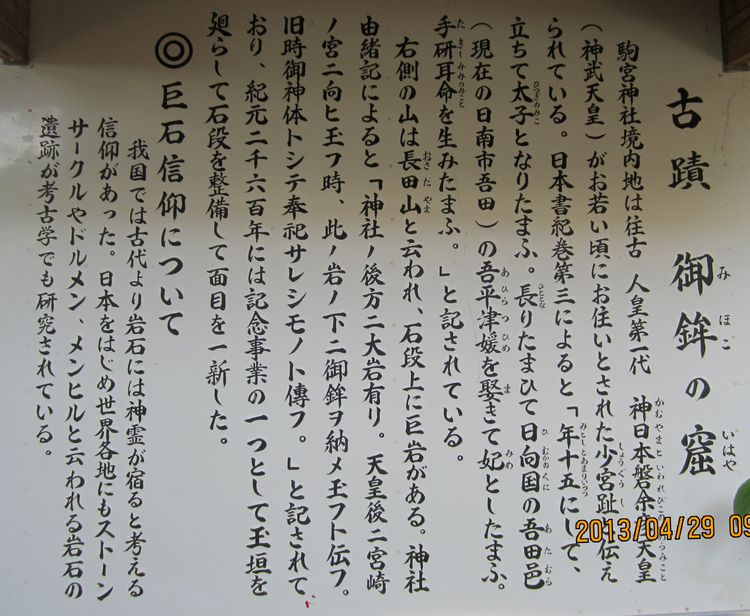 古蹟 御鉾の窟
みほこ いはや
駒宮神社境内地は往古 人皇第一代 神日本磐余天皇
かむやまといわれびこの うみこと
（神武天皇）がお若い頃にお住いとされた少宮趾と伝え
しょうぐうし
られている。日本書紀巻第三によると「年十五にして、
みとしとあまりいつつ
立ちて太子となりたまふ。長りたまひて日向国の吾田邑
ひつぎのみこ ひととな ひむかのくに あたむら
（現在の日南市吾田）の吾平津媛を娶きて妃としたまふ。
あひらつひめ ま みめ
手研耳命を生みたまふ。」と記されている。
たぎしみみのみこと
右側の山は長田山と云われ、石段上に巨岩がある。神社
おさだやま
由緒記によると「神社ノ後方ニ大岩有り。天皇後ニ宮崎
ノ宮ニ向ヒ玉フ時、此ノ岩ノ下ニ御鉾ヲ納メ玉フト伝フ。
旧時御神体トシテ奉祀サレシモノト傳フ。」と記されて
おり、紀元二千六百年には記念事業の一つとして玉垣を
廻らして石段を整備して面目を一新した。
◎巨石信仰について
我国では古代より岩石には神霊が宿ると考える
信仰があった。日本をはじめ世界各地にもストーン
サークルやドルメン、メンヒルと云われる岩石の
遺跡が考古学でも研究されている。
2013/04/29 09